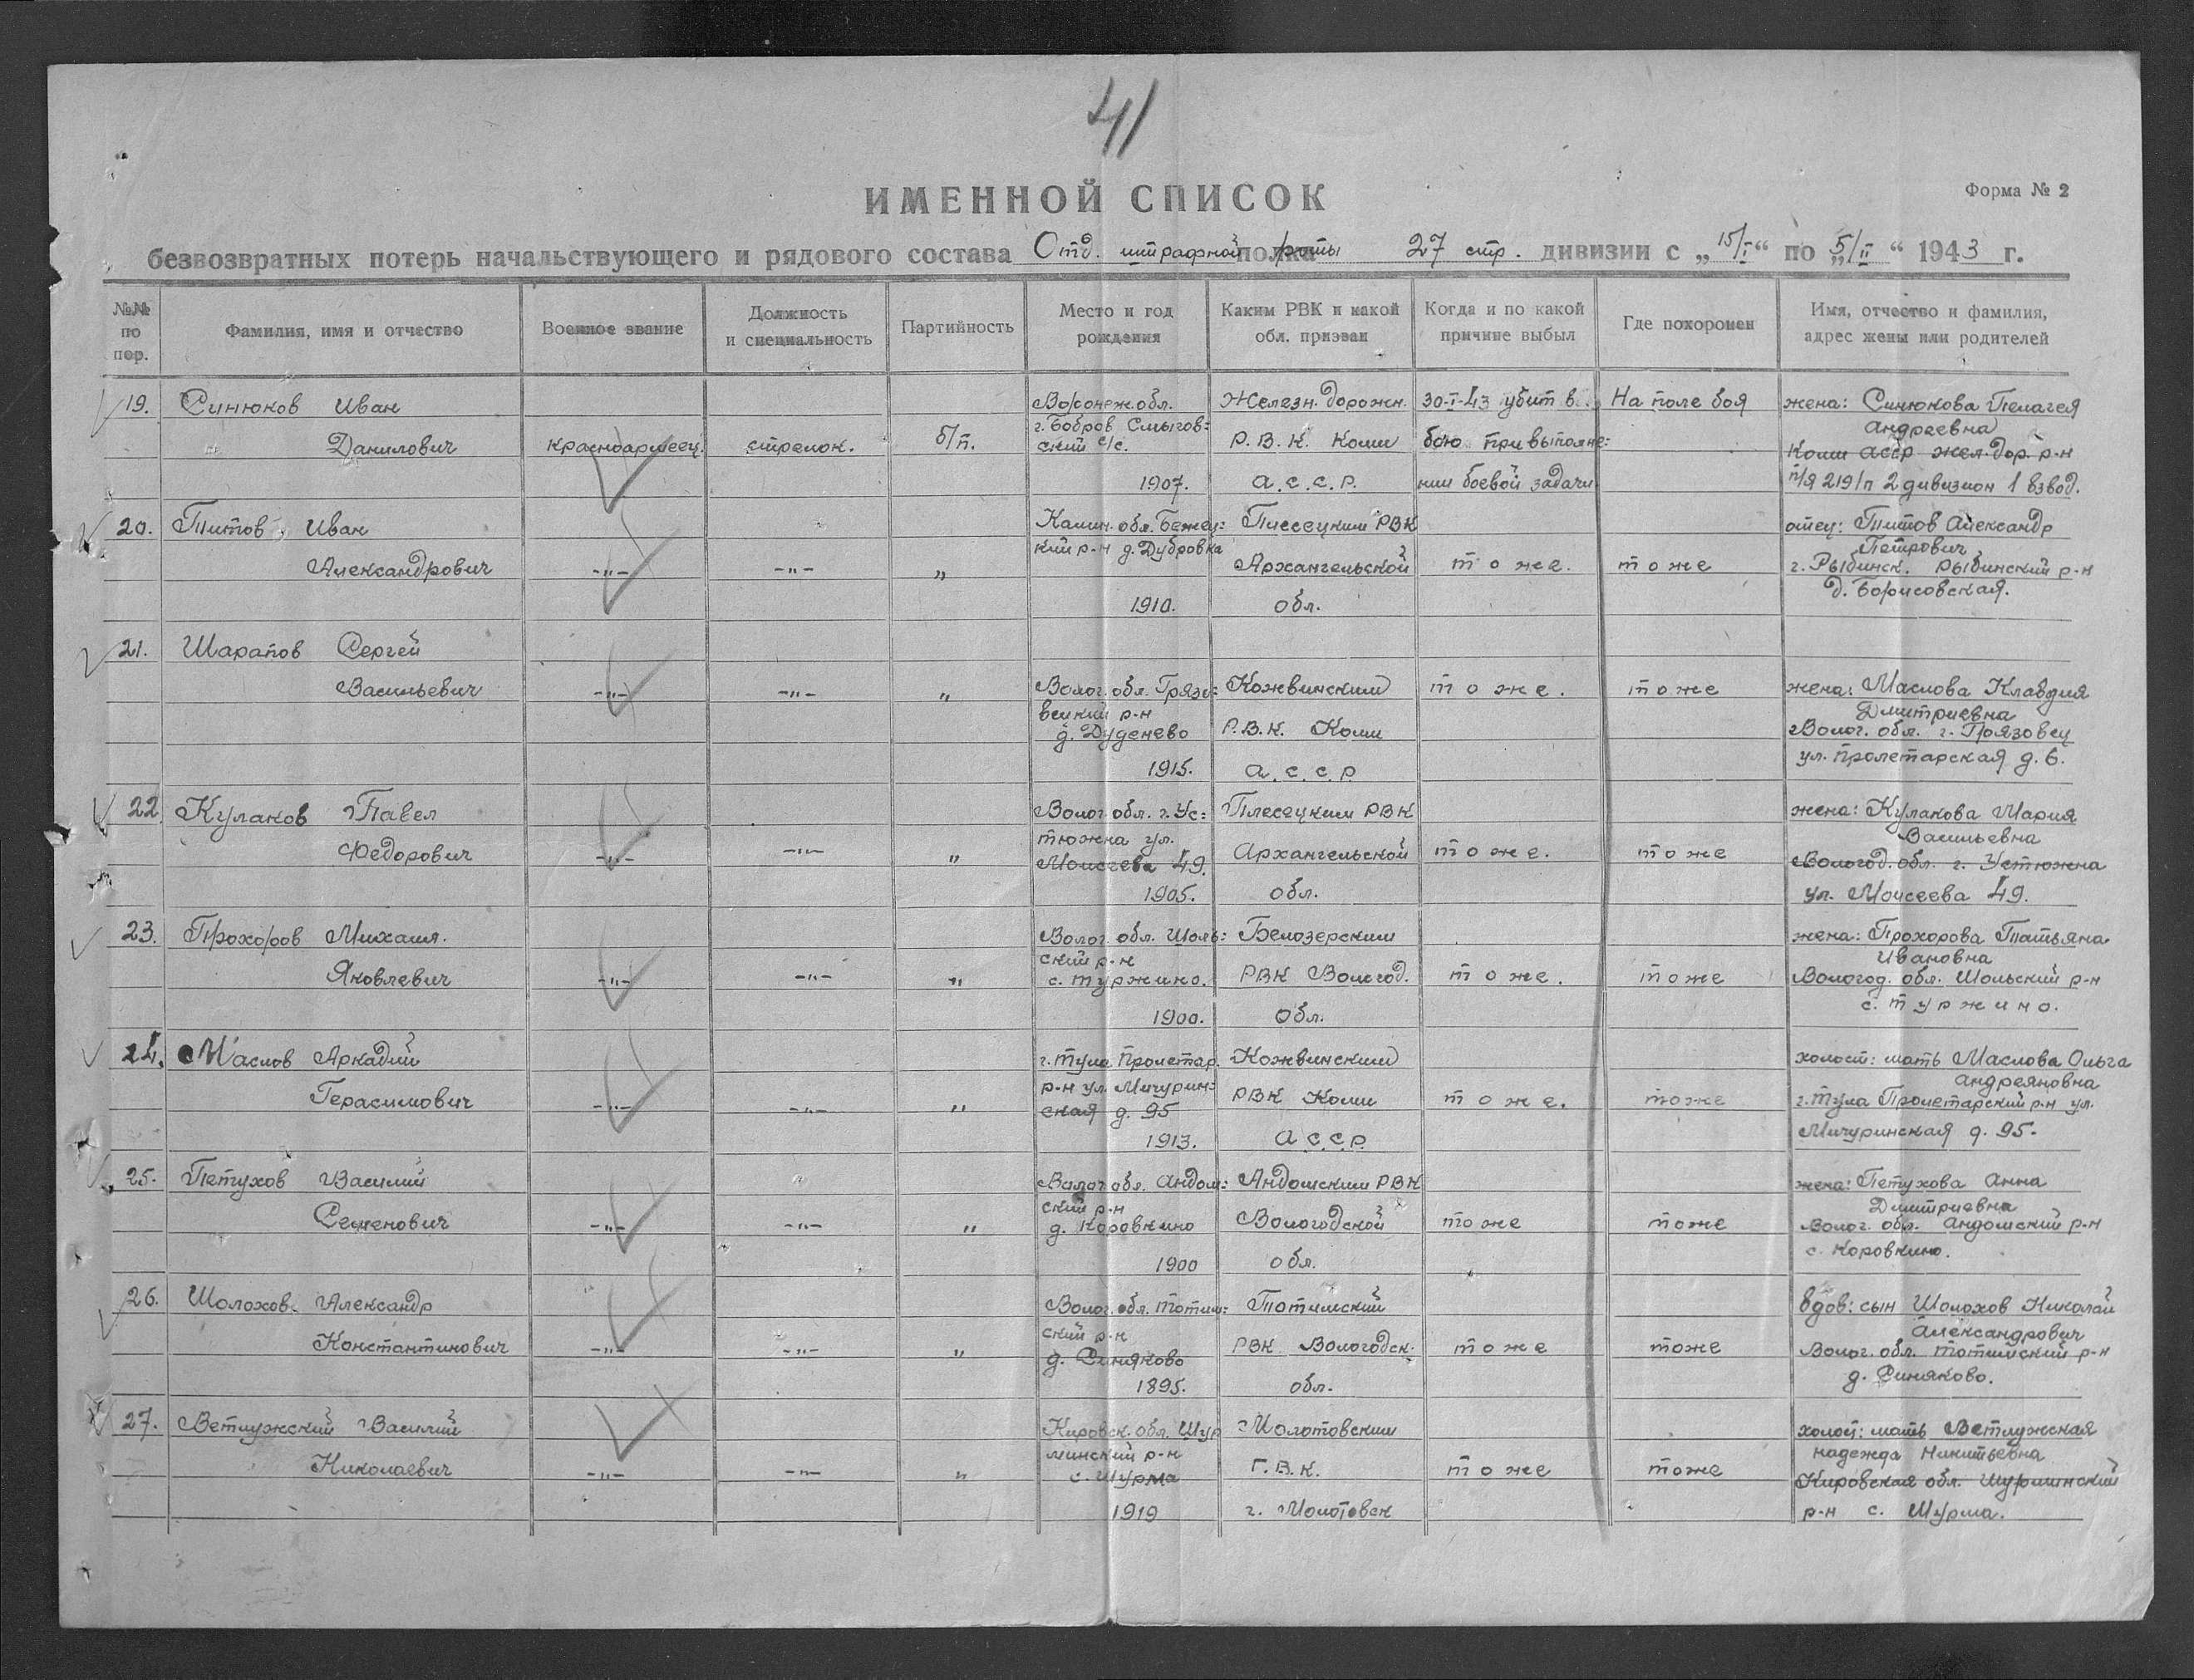 41
ИМЕННОЙ СПИСОК
Форма № 2
безвозвратных потерь начальствующего и рядового состава Отд. штрафной полка роты 27 стр. дивизии с „15/I“ по „5/II“ 1943 г.
№№ по пор.
Фамилия, имя и отчество
Военное звание
Должность и специальность
Партийность
Место и год рождения
Каким РВК и какой обл. призван
Когда и по какой причине выбыл
Где похоронен
Имя, отчество и фамилия, адрес жены или родителей
19. Синюков Иван Воронеж. обл. Железн. дорожн. 30-I-43 убит в На поле боя жена: Синюкова Пелагея
г. Бобров Смыгов= Андреевна
Данилович красноармеец. стрелок. б/п. ский с/с. Р.В.К. Коми бою при выполне=
Коми АССР жел. дор. р-н
1907. А.С.С.Р. нии боевой задачи п/я 219/п 2 дивизион 1 взвод.
20. Титов Иван Калин. обл. Бежец= РВК отец: Титов Александр
кий р-н д. Дубровка Петрович
Александрович -"- -"- " Архангельской тоже. тоже г. Рыбинск. Рыбинский р-н
д. Борисовская.
1910. обл.
21. Шарапов Сергей
Васильевич -"- -"- " Волог. обл. Грязо= Кожвинским тоже. тоже жена: Маслова Клавдия
вецкий р-н Дмитриевна
д. Дуденево Р.В.К. Коми Волог. обл. г. Грязовец
ул. Пролетарская д. 6.
1915. А.С.С.Р
22. Кулаков Павел Волог. обл. г. Ус= Плесецким РВК жена: Кулакова Мария
тюжна ул. Васильевна
Федорович -"- -"- " Моисеева 49. Архангельской тоже. тоже Вологод. обл. г. Устюжна
1905. обл. ул. Моисеева 49.
23. Прохоров Михаил. Волог. обл. Шоль= Белозерским жена: Прохорова Татьяна
ский р-н Ивановна
Яковлевич -"- -"- " с. Туржино. РВК Вологод. тоже. тоже Вологод. обл. Шольский р-н
с. Туржино.
1900. Обл.
24. Маслов Аркадий г. Тула Пролетар. Кожвинским холост: мать Маслова Ольга
р-н ул. Мичурин= Андреяновна
Герасимович -"- -"- " ская д. 95 РВК Коми тоже. тоже г. Тула Пролетарский р-н ул.
1913. АССР Мичуринская д. 95.
25. Петухов Василий Волог. обл. Андом= Андомским РВК жена: Петухова Анна
ский р-н Дмитриевна
Семенович -"- -"- " д. Коровкино Вологодской тоже тоже Волог. обл. Андомский р-н
1900 обл. с. Коровкино.
26. Шолохов Александр Волог. обл. Тотем= Тотемский вдов: сын Шолохов Николай
ский р-н Александрович
Константинович -"- -"- " д. Синяково РВК Вологодск. тоже тоже Волог. обл. Тотемский р-н
д. Синяково.
1895. обл.
27. Ветлужский Василий Кировск. обл. Шур Молотовским холост: мать Ветлужская
минский р-н Надежда Никитьевна
Николаевич -"- -"- " с. Шурма Г.В.К. тоже тоже Кировская обл. Шурминский
1919 г. Молотовск р-н с. Шурма.